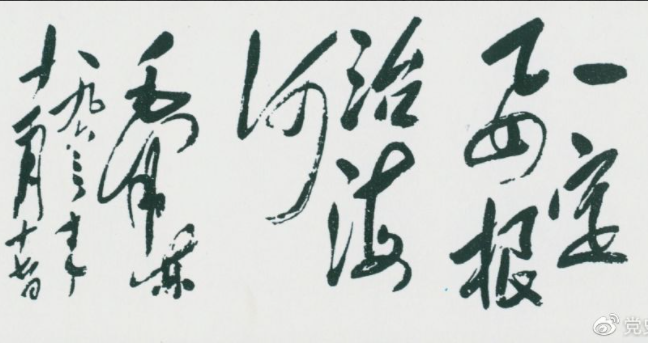 一定
要根
治海
河
毛泽东
一九六三年
十一月十七日
@党